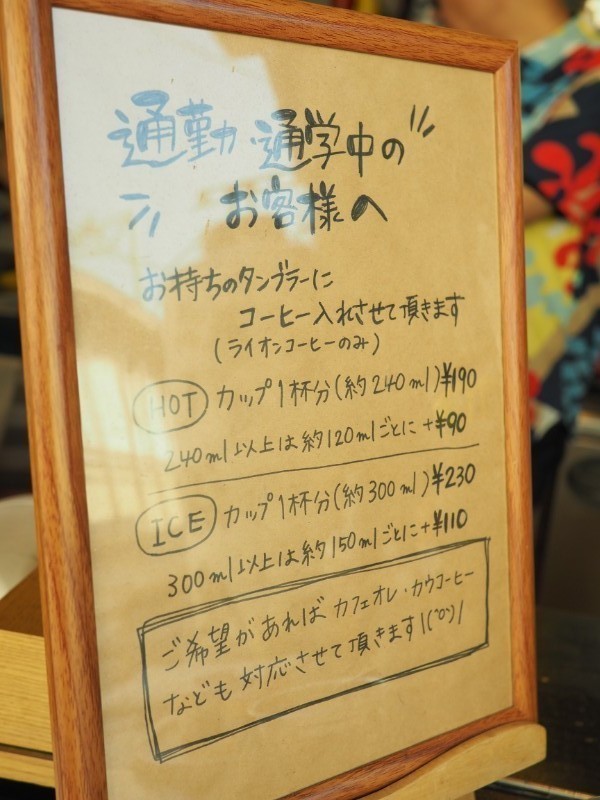 通勤・通学中の
お客様へ
お持ちのタンブラーに
コーヒー入れさせて頂きます
(ライオンコーヒーのみ)
HOT カップ1杯分(約240ml)¥190
240ml以上は約120mlごとに+¥90
ICE カップ1杯分(約300ml)¥230
300ml以上は約150mlごとに+¥110
ご希望があればカフェオレ・カウコーヒー
なども対応させて頂きます!(^o^)/